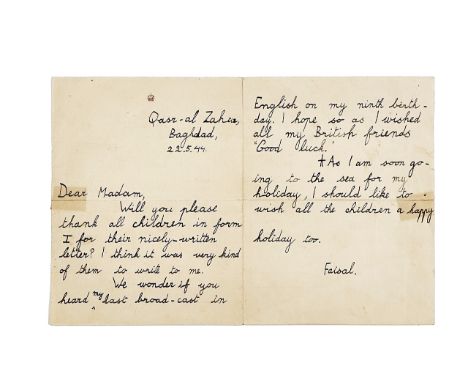 Qasr-al Zahra,
Baghdad,
22.5.44.
Dear Madam,
Will you please
thank all children in form
I for their nicely-written
letter? I think it was very kind
of them to write to me.
We wonder if you
heard my last broad-cast in
English on my ninth birth-
day. I hope so as I wished
all my British friends
"Good luck."
As I am soon go-
ing to the sea for my
holiday, I should like to
wish all the children a happy
holiday too.
Faisal.